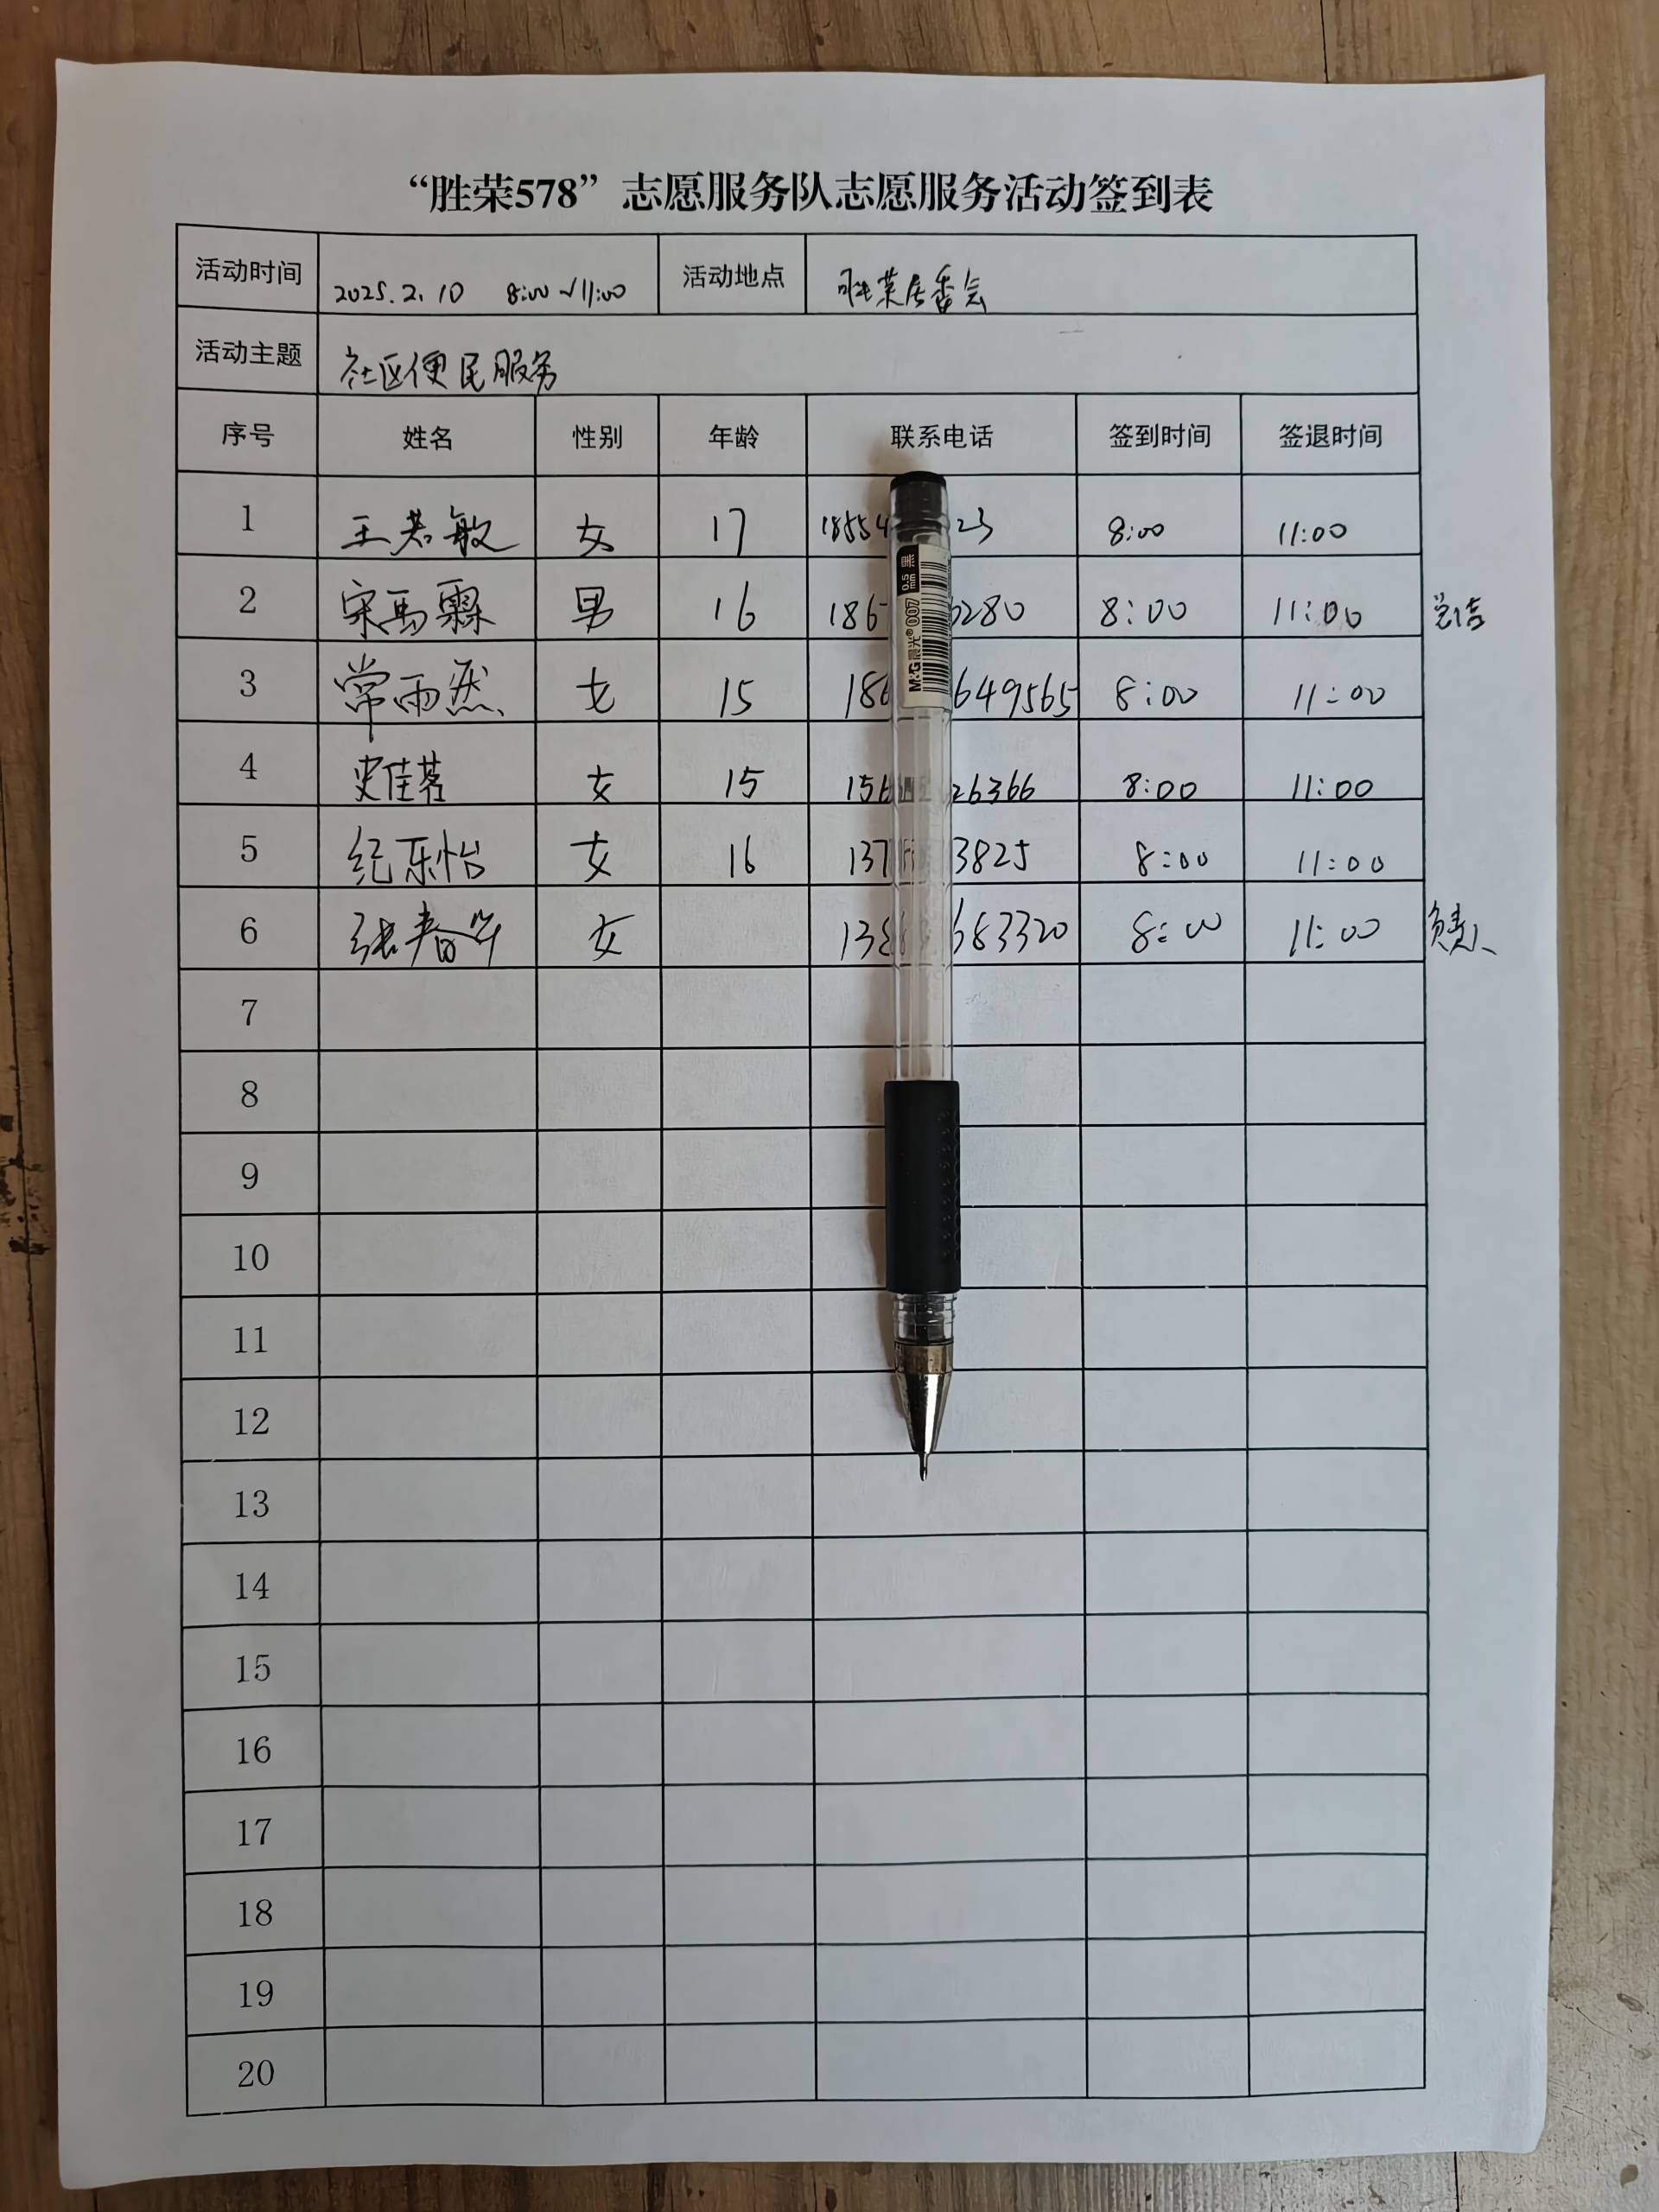 “胜荣578”志愿服务队志愿服务活动签到表
活动时间 2025.2.10 8:00~11:00 活动地点 胜荣居委会
活动主题 社区便民服务
序号 姓名 性别 年龄 联系电话 签到时间 签退时间
1 王若敏 女 17 18554 23 8:00 11:00
2 宋禹霖 男 16 186 6280 8:00 11:00 总结
3 常雨然 女 15 186 649565 8:00 11:00
4 史佳茗 女 15 156 26366 8:00 11:00
5 纪乐怡 女 16 137 3825 8:00 11:00
6 张春华 女 138 683320 8:00 11:00 负责人
7
8
9
10
11
12
13
14
15
16
17
18
19
20
M&G晨光® 007 0.5mm 黑